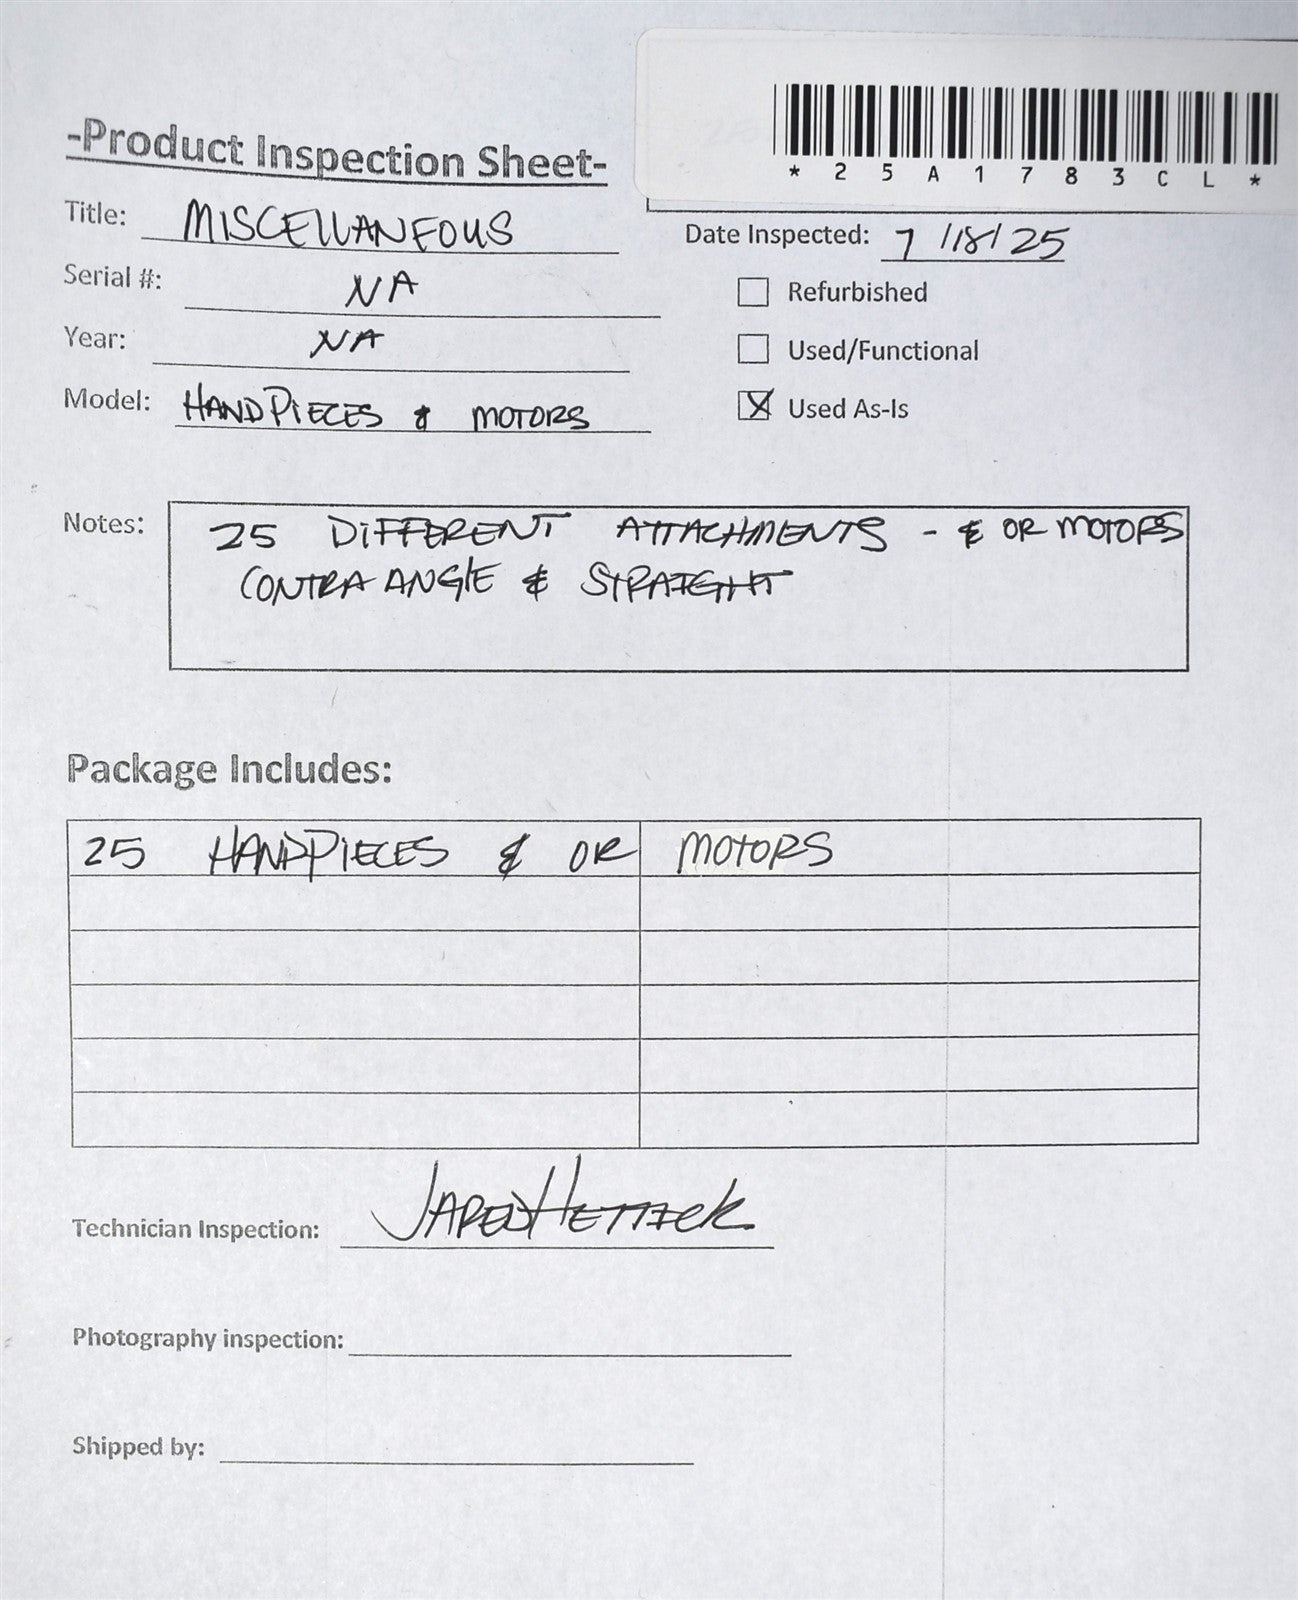 *25A1783CL*
-Product Inspection Sheet-
Title: MISCELLANEOUS
Date Inspected: 7/18/25
Serial #: NA
Refurbished
Year: NA
Used/Functional
Model: HANDPIECES & MOTORS
X Used As-Is
Notes: 25 DIFFERENT ATTACHMENTS - & OR MOTORS
CONTRA ANGLE & STRAIGHT
Package Includes:
25 HANDPIECES & OR MOTORS
Technician Inspection: JARED HETTICK
Photography inspection:
Shipped by: